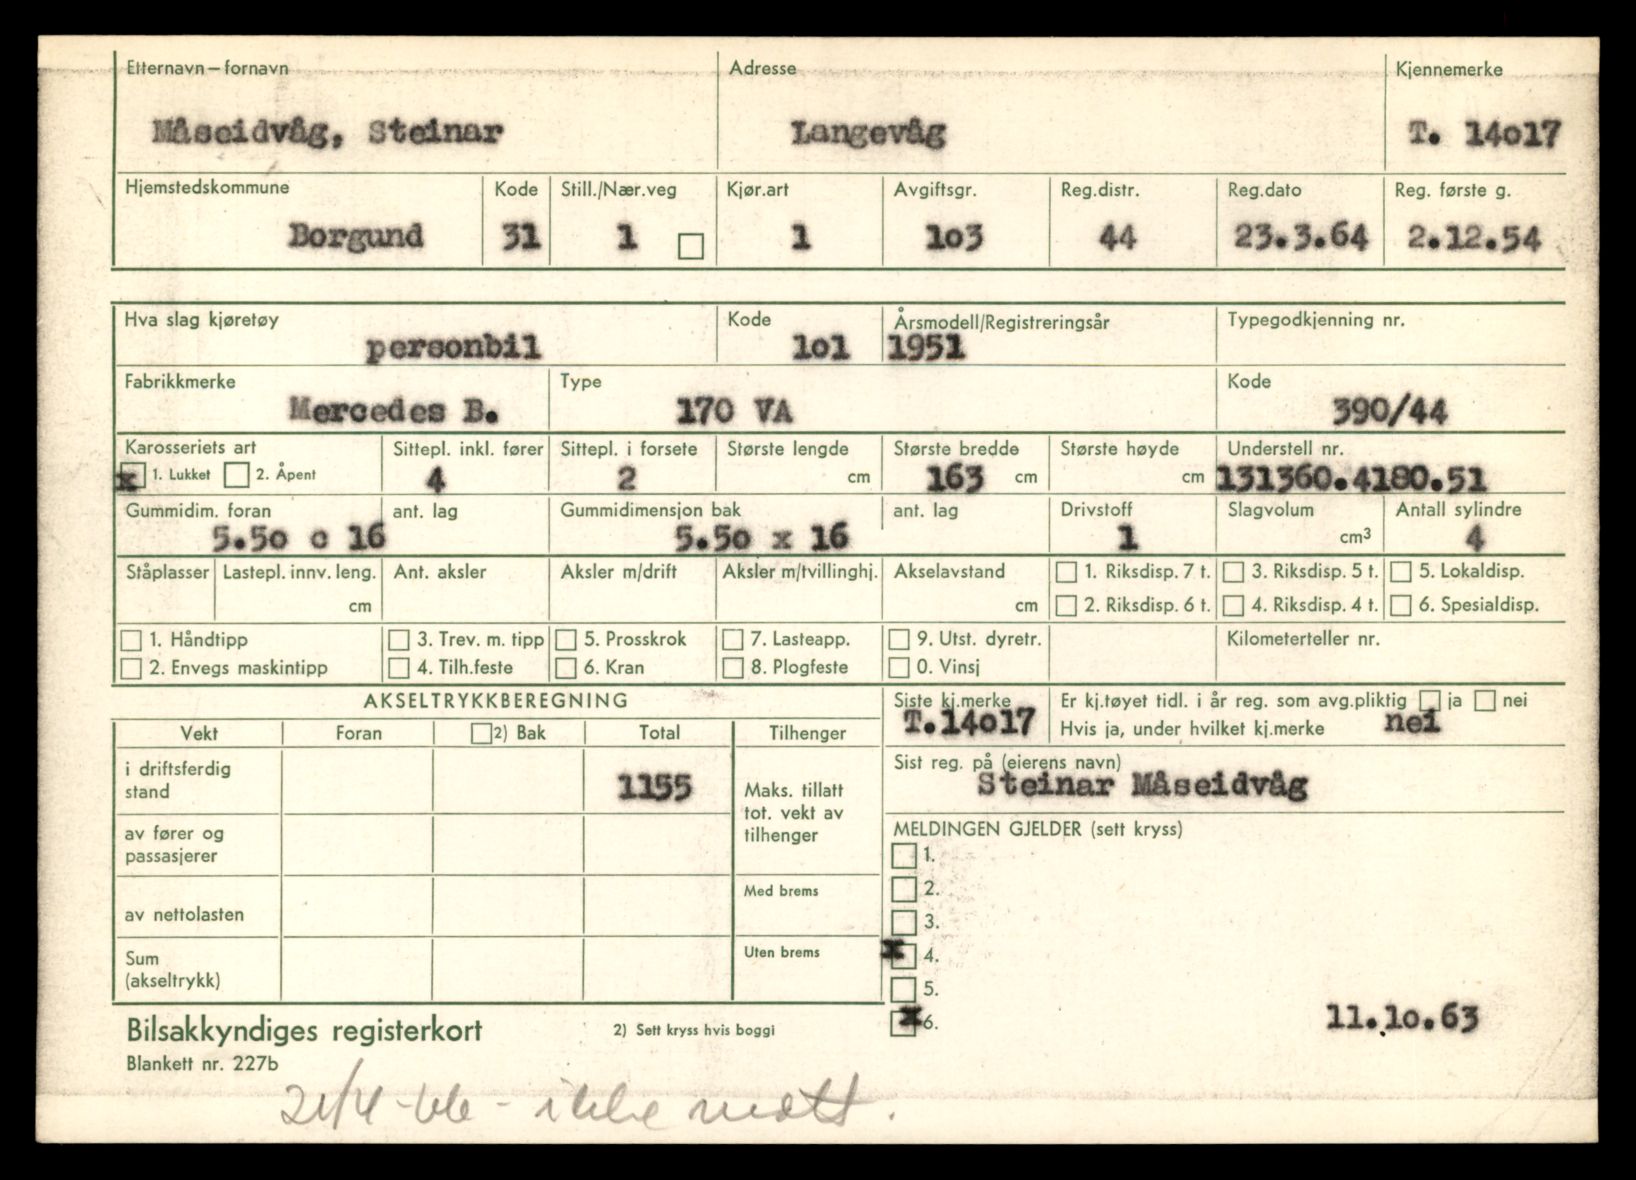 Etternavn – fornavn Adresse Kjennemerke
Måseidvåg, Steinar Langevåg T. 14o17
Hjemstedskommune Kode Still./Nær.veg Kjør.art Avgiftsgr. Reg.distr. Reg.dato Reg. første g.
Borgund 31 1 1 1o3 44 23.3.64 2.12.54
Hva slag kjøretøy Kode Årsmodell/Registreringsår Typegodkjenning nr.
personbil 1o1 1951
Fabrikkmerke Type Kode
Mercedes B. 170 VA 390/44
Karosseriets art Sittepl. inkl. fører Sittepl. i forsete Største lengde Største bredde Største høyde Understell nr.
x 1. Lukket 2. Åpent 4 2 cm 163 cm cm 131360.4180.51
Gummidim. foran ant. lag Gummidimensjon bak ant. lag Drivstoff Slagvolum Antall sylindre
5.5o c 16 5.5o x 16 1 cm3 4
Ståplasser Lastepl. innv. leng. Ant. aksler Aksler m/drift Aksler m/tvillinghj. Akselavstand 1. Riksdisp. 7 t. 3. Riksdisp. 5 t. 5. Lokaldisp.
cm cm 2. Riksdisp. 6 t. 4. Riksdisp. 4 t. 6. Spesialdisp.
1. Håndtipp 3. Trev. m. tipp 5. Prosskrok 7. Lasteapp. 9. Utst. dyretr. Kilometerteller nr.
2. Envegs maskintipp 4. Tilh.feste 6. Kran 8. Plogfeste 0. Vinsj
AKSELTRYKKBEREGNING Siste kj.merke Er kj.tøyet tidl. i år reg. som avg.pliktig ja nei
Vekt Foran 2) Bak Total Tilhenger T.14o17 Hvis ja, under hvilket kj.merke nei
i driftsferdig stand 1155 Maks. tillatt tot. vekt av tilhenger Sist reg. på (eierens navn)
Steinar Måseidvåg
av fører og passasjerer MELDINGEN GJELDER (sett kryss)
1.
av nettolasten Med brems 2.
3.
Sum (akseltrykk) Uten brems x 4.
5.
x 6. 11.10.63
Bilsakkyndiges registerkort 2) Sett kryss hvis boggi
Blankett nr. 227b
21/4-66 - ikke møtt.